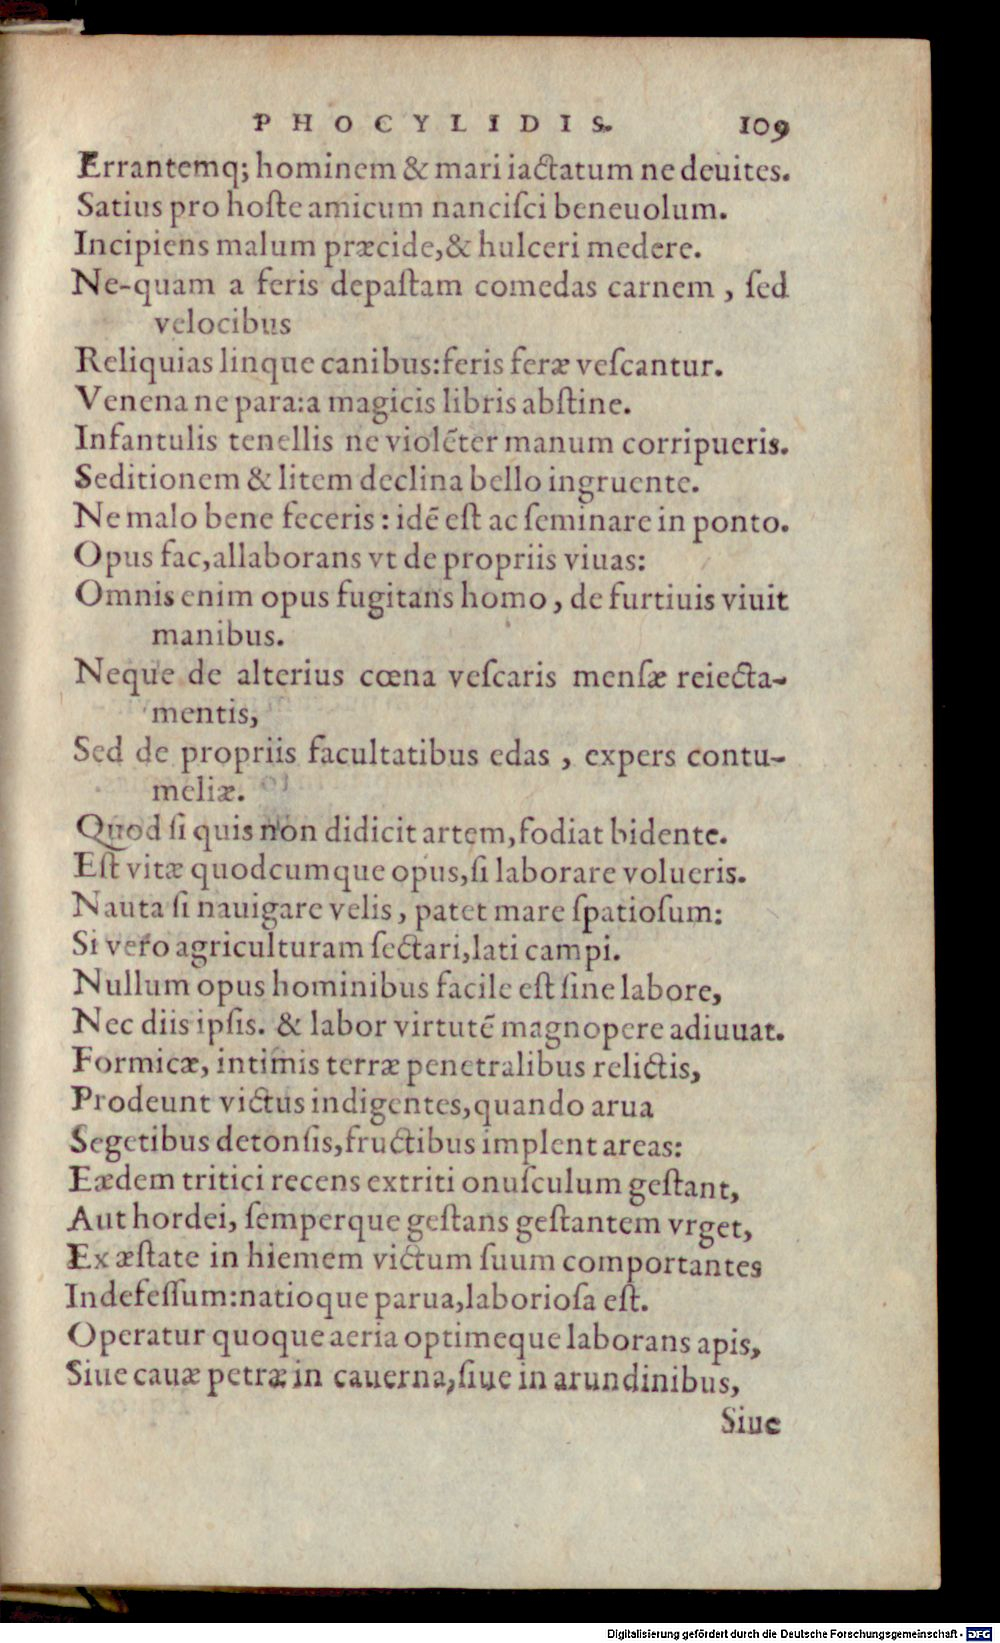 PHOCYLIDIS. 109
Errantemq; hominem & mari iactatum ne deuites.
Satius pro hoſte amicum nanciſci beneuolum.
Incipiens malum præcide,& hulceri medere.
Ne-quam a feris depaſtam comedas carnem, ſed
velocibus
Reliquias linque canibus:feris feræ veſcantur.
Venena ne para:a magicis libris abſtine.
Infantulis tenellis ne violẽter manum corripueris.
Seditionem & litem declina bello ingruente.
Ne malo bene feceris: idẽ eſt ac ſeminare in ponto.
Opus fac,allaborans vt de propriis viuas:
Omnis enim opus fugitans homo, de furtiuis viuit
manibus.
Neque de alterius cœna veſcaris menſæ reiecta-
mentis,
Sed de propriis facultatibus edas, expers contu-
meliæ.
Quod ſi quis non didicit artem,fodiat bidente.
Eſt vitæ quodcumque opus,ſi laborare volueris.
Nauta ſi nauigare velis, patet mare ſpatioſum:
Si vero agriculturam ſectari,lati campi.
Nullum opus hominibus facile eſt ſine labore,
Nec diis ipſis. & labor virtutẽ magnopere adiuuat.
Formicæ, intimis terræ penetralibus relictis,
Prodeunt victus indigentes,quando arua
Segetibus detonſis,fructibus implent areas:
Eædem tritici recens extriti onuſculum geſtant,
Aut hordei, ſemperque geſtans geſtantem vrget,
Ex æſtate in hiemem victum ſuum comportantes
Indefeſſum:natioque parua,laborioſa eſt.
Operatur quoque aeria optimeque laborans apis,
Siue cauæ petræ in cauerna,ſiue in arundinibus,
Siue
Digitalisierung gefördert durch die Deutsche Forschungsgemeinschaft - DFG